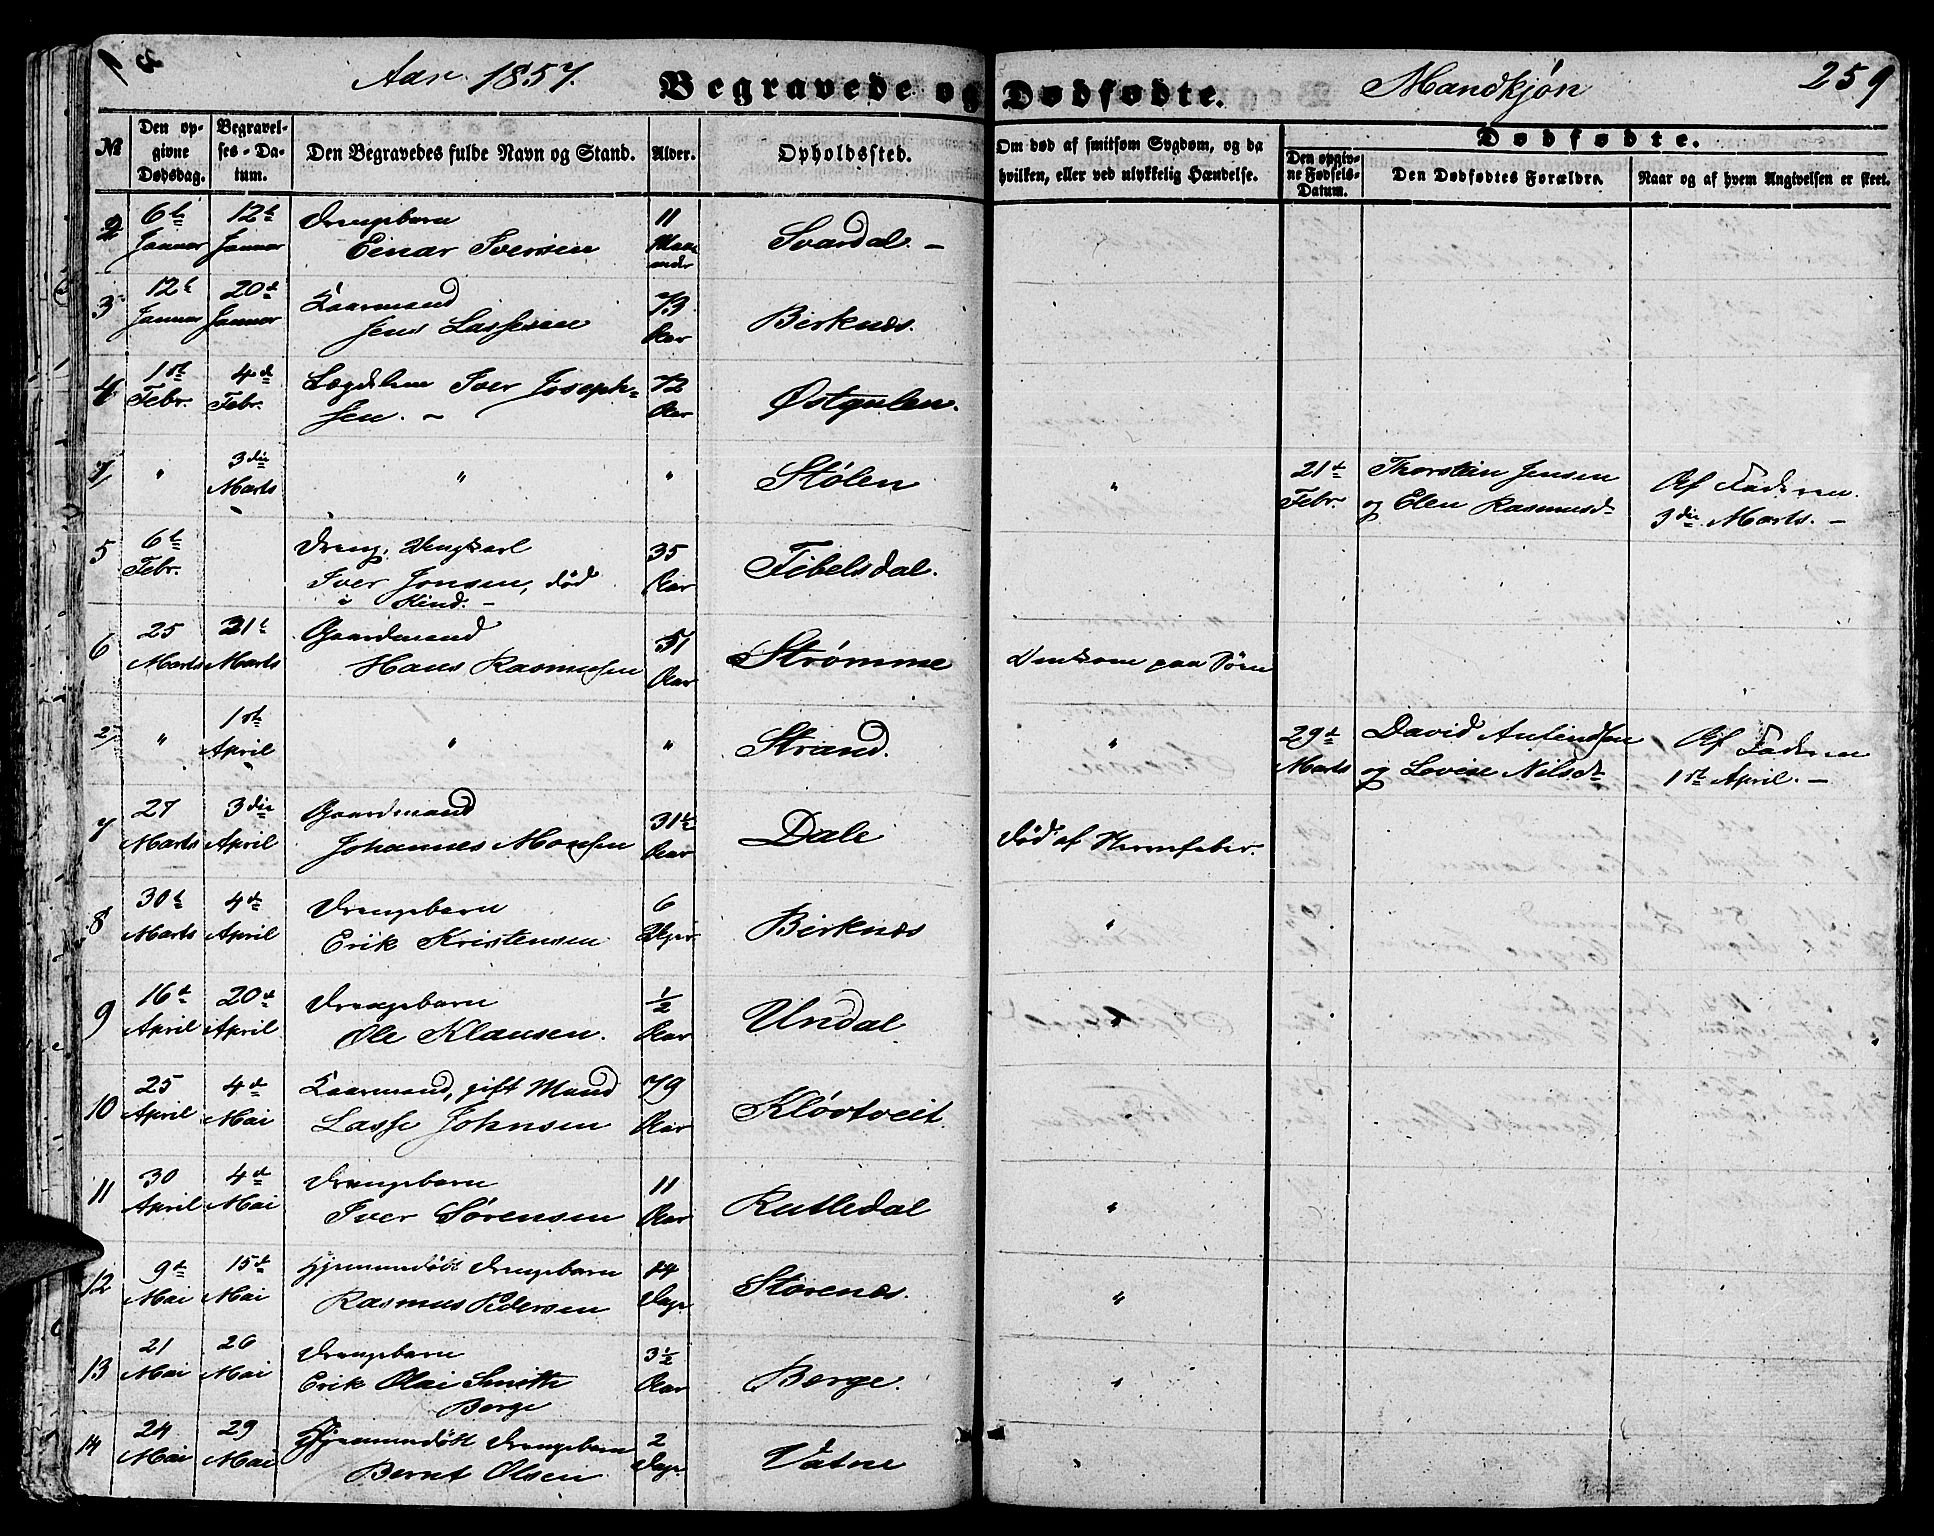 Aar 1857. Begravede og Dødfødte. Mandkjøn 259
№
Den opgivne Dødsdag.
Begravelses-Datum.
Den Begravedes fulde Navn og Stand.
Alder.
Opholdssted.
Om død af smitsom Sygdom, og da hvilken, eller ved ulykkelig Hændelse.
Dødfødte.
Den opgivne Fødsels-Datum.
Den Dødfødtes Forældre.
Naar og af hvem Angivelsen er skeet.
2 6te Januar 12te Januar Drengebarn
Einar Iversen 11 Maaneder Svardal. -
3 12te Januar 20de Januar Kaarmand
Jens Lassesen 73 Aar Birknæs.
4 1ste Febr. 4de Febr. Lægdslem Iver Joseph-
sen. - 72 Aar Østgulen.
1/ " 3die Marts " " Stølen " 21de Febr. Thorstein Jensen
og Elen Rasmusdr Af Faderen
3die Marts. -
5 6te Febr. Dreng,
Iver Jonsen, død
i Kind. - 35 Aar Fibelsdal.
6 25 Marts 31te Marts Gaardmand
Hans Rasmussen 51 Aar Strømme Omkom paa Søen
2/ " 1ste April " " Strand. " 29de Marts David Anfindsen
og Lovise Nilsdr Af Faderen
1ste April. -
7 27 Marts 3die April Gaardmand
Johannes Monsen 31½ Aar Dale Død af Nervefeber.
8 30te Marts 4de April Drengebarn
Erik Kristensen 6 Uger Birknæs "
9 16de April 20de April Drengebarn
Ole Klausen. ½ Aar Undal "
10 25 April 4de Mai Kaarmand, gift Mand
Lasse Johnsen 79 Aar Kløvtveit. "
11 30 April 4de Mai Drengebarn
Iver Sørensen 11 Aar Rutledal "
12 9de Mai 15de Mai Hjemmedøbt Drengebarn
Rasmus Pedersen 14 Dage Storenæs. "
13 21 Mai 26 Mai Drengebarn
Erik Olai Smith
Borge 3½ Aar Borge. "
14 24 Mai 29 Mai Hjemmedøbt Drengebarn
Bernt Olsen 2 Dage Vatne